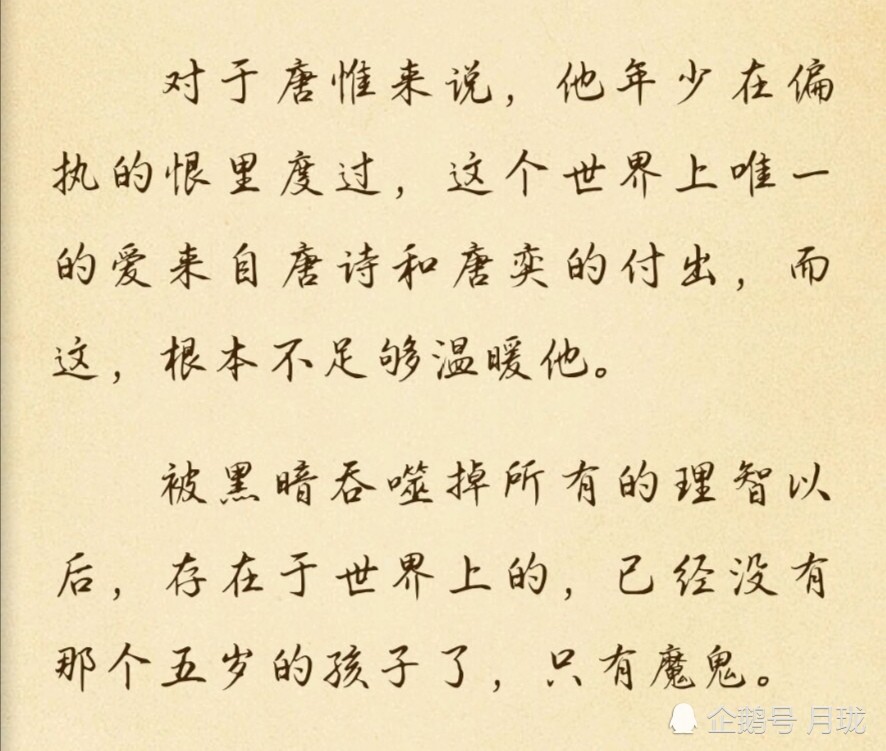 对于唐惟来说，他年少在偏
执的恨里度过，这个世界上唯一
的爱来自唐诗和唐奕的付出，而
这，根本不足够温暖他。
被黑暗吞噬掉所有的理智以
后，存在于世界上的，已经没有
那个五岁的孩子了，只有魔鬼。
企鹅号 月珑